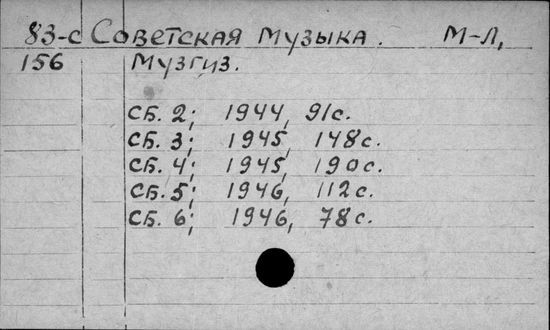 83-с Советская музыка. М-Л,
156 Музгиз.
Сб. 2; 1944, 91с.
Сб. 3; 1945, 148с.
Сб. 4; 1945, 190с.
Сб. 5; 1946, 112с.
Сб. 6; 1946, 78с.